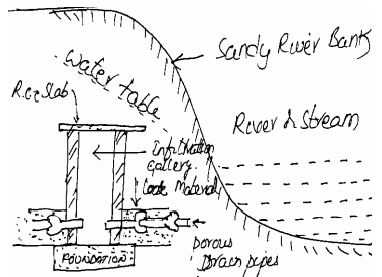 Sandy River Bank
Water table
R.cc slab
River & Stream
Infiltration
Gallery
Loose Material
porous
Drain pipes
FOUNDATION